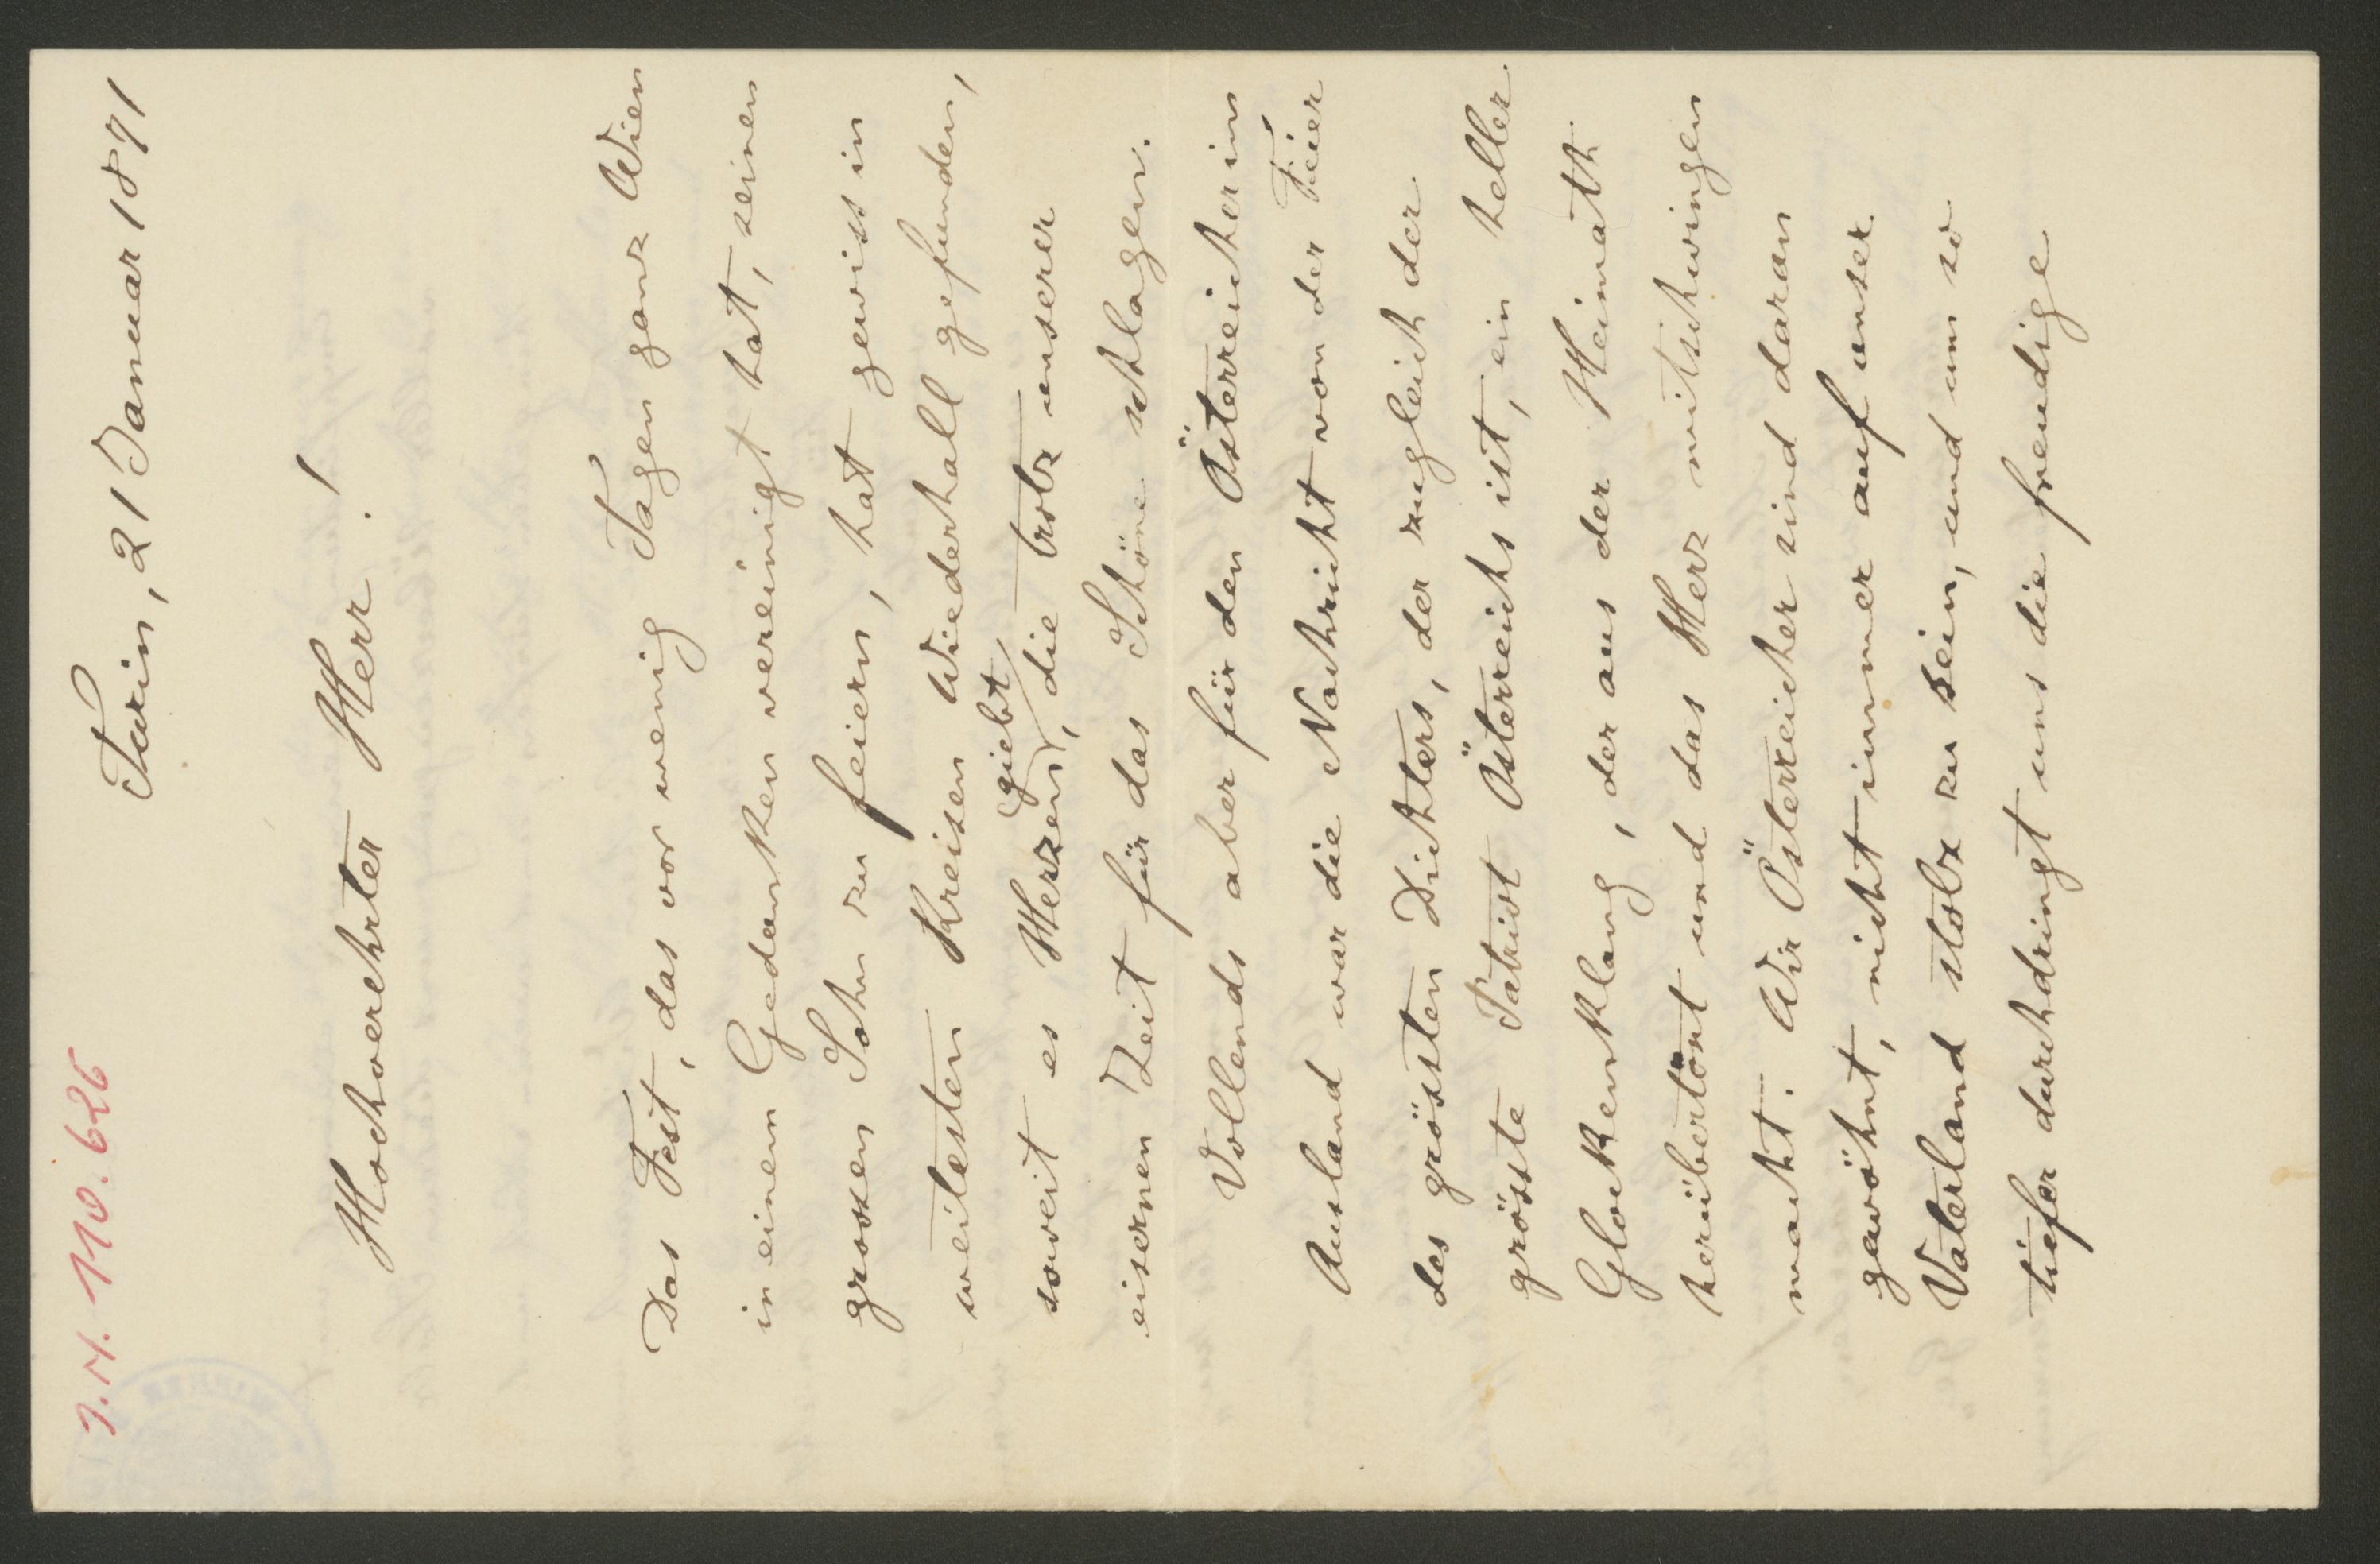 J.N. 110.626
Turin, 21 Januar 1891
Hochverehrter Herr!
Das Fest, das vor wenig Tagen ganz Wien
in einem Gedanken vereinigt hat, seinen
grossen Sohn zu feiern, hat gewiss in
weitesten Kreisen Wiederhall gefunden,
soweit es Herzen giebt, die trotz unserer
eisernen Zeit für das Schöne schlagen.
Vollends aber für den Österreicher im
Ausland war die Nachricht von der Feier
des grössten Dichters, der zugleich der
grösste Patriot Österreichs ist, ein heller
Glockenklang, der aus der Heimath
herübertönt und das Herz mitschwingen
macht. Wir Österreicher sind daran
gewöhnt, nicht immer auf unser
Vaterland stolz zu sein, und um so
tiefer durchdringt uns die freudige